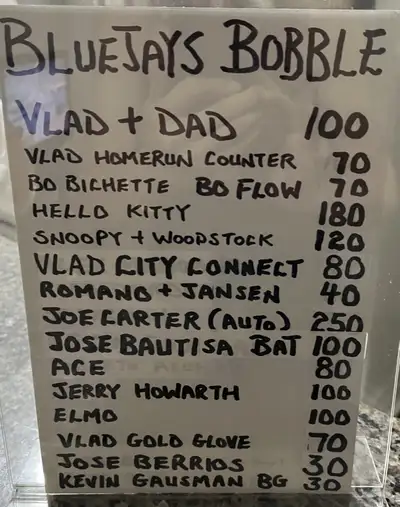 BLUEJAYS BOBBLE
VLAD + DAD 100
VLAD HOMERUN COUNTER 70
BO BICHETTE BO FLOW 70
HELLO KITTY 180
SNOOPY + WOODSTOCK 120
VLAD CITY CONNECT 80
ROMANO + JANSEN 40
JOE CARTER (AUTO) 250
JOSE BAUTISA BAT 100
ACE 80
JERRY HOWARTH 100
ELMO 100
VLAD GOLD GLOVE 70
JOSE BERRIOS 30
KEVIN GAUSMAN BG 30